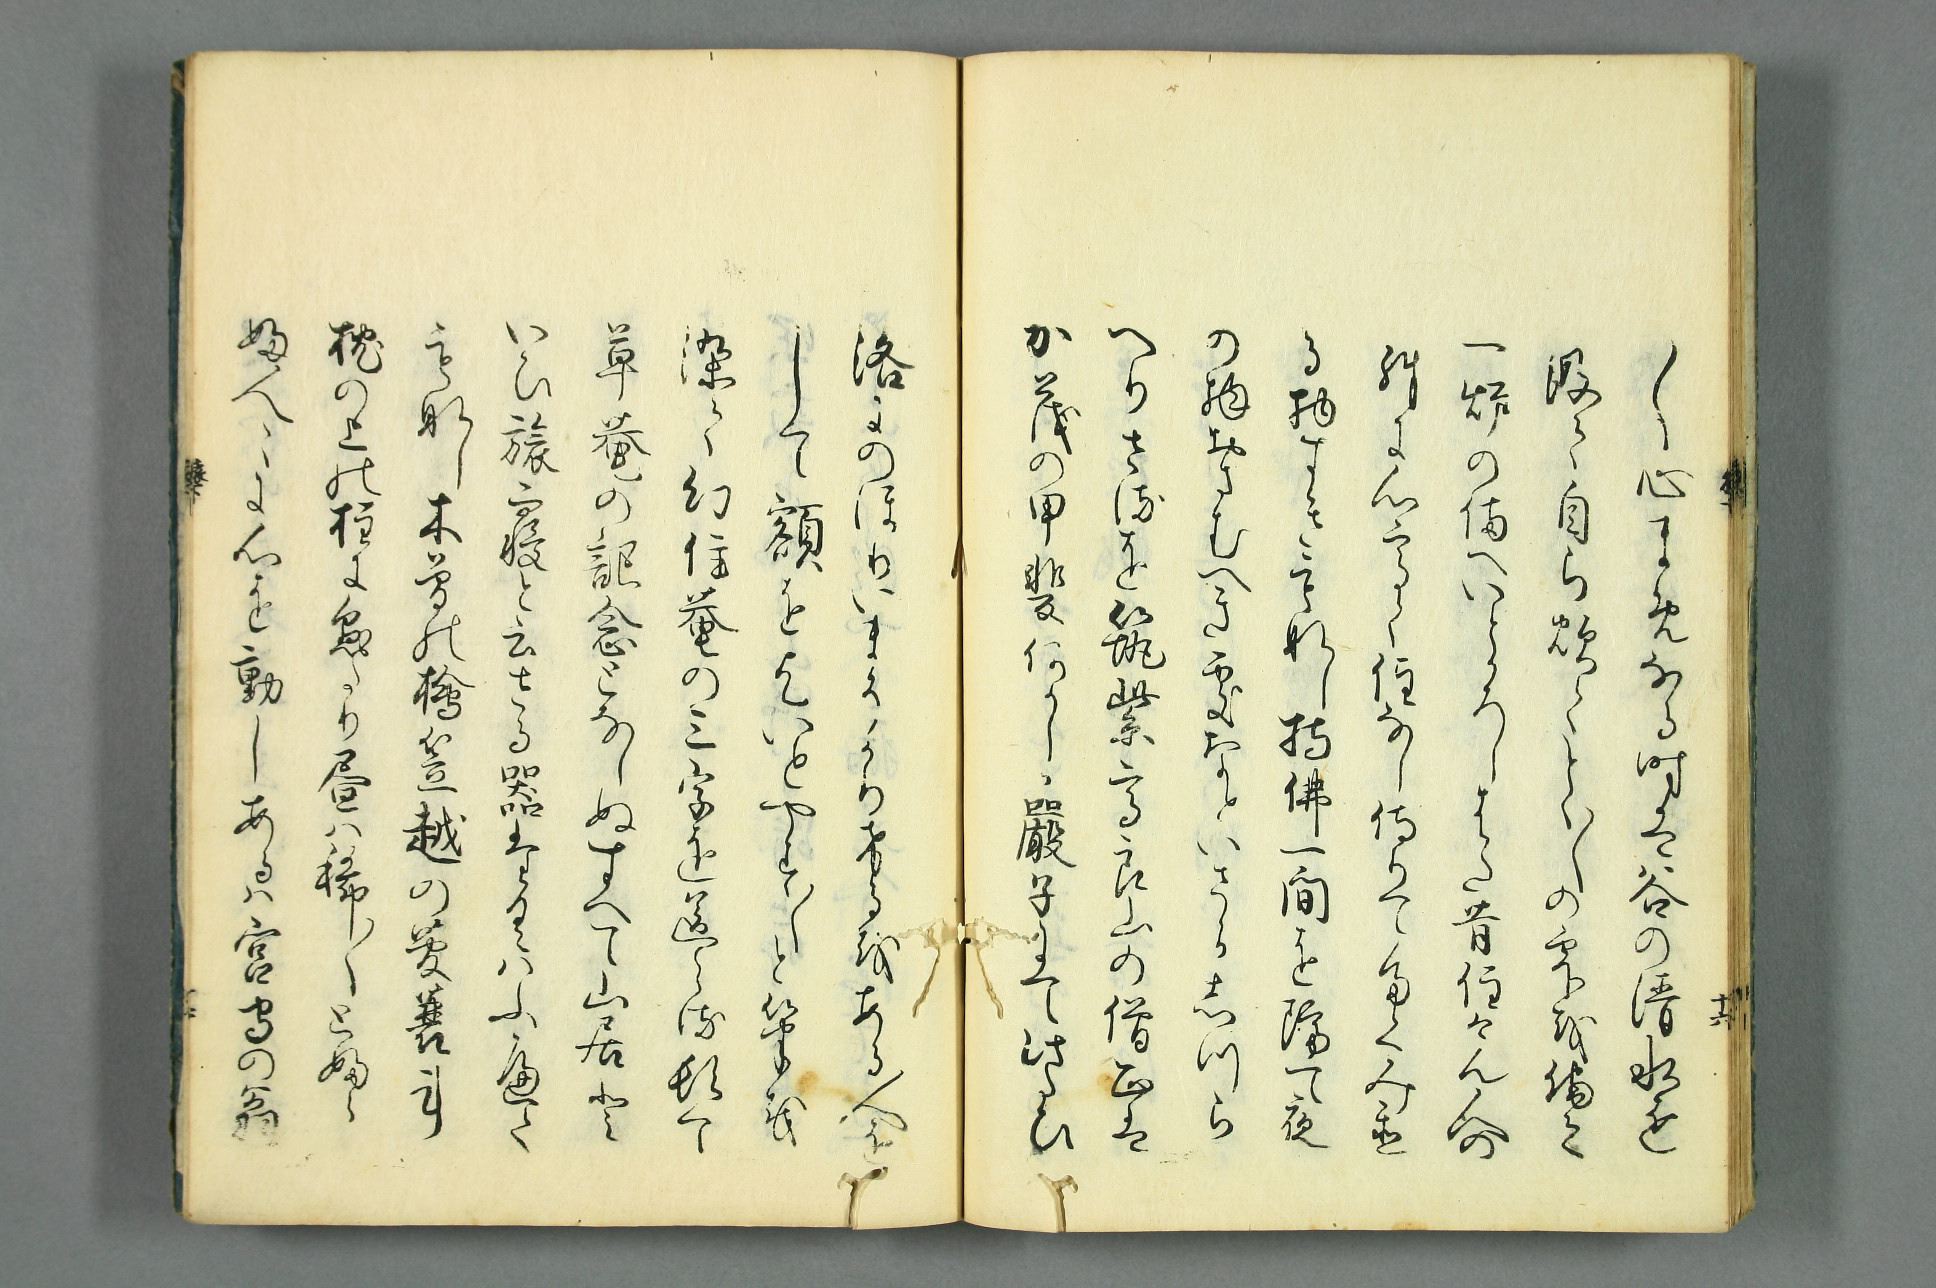 〱心まめなる時は谷の清水を
汲て自ら炊くとく〱の雫を侘て
一炉の備へいとかろしはた昔住けん人の
殊に心高く住なし侍りてたくみ置
る物すきもなし持佛一間を隔て夜
の物おさむへき處なといさゝかしつら
へりさるを筑紫高良山の僧正は
加茂の甲斐何かしか嚴子にて此たひ
十六
洛にのほりいまそかりけるをある人を
して額を乞いとやす〱と筆を
染て幻住菴の三字を送らる頓て
草菴の記念となしぬすへて山居と
いひ旅寝と云さる器たくはふへく
もなし木曽の檜笠越の菅蓑計
枕の上の柱に懸たり昼は稀〱とふら
ふ人〻に心を動しあるは宮守の翁